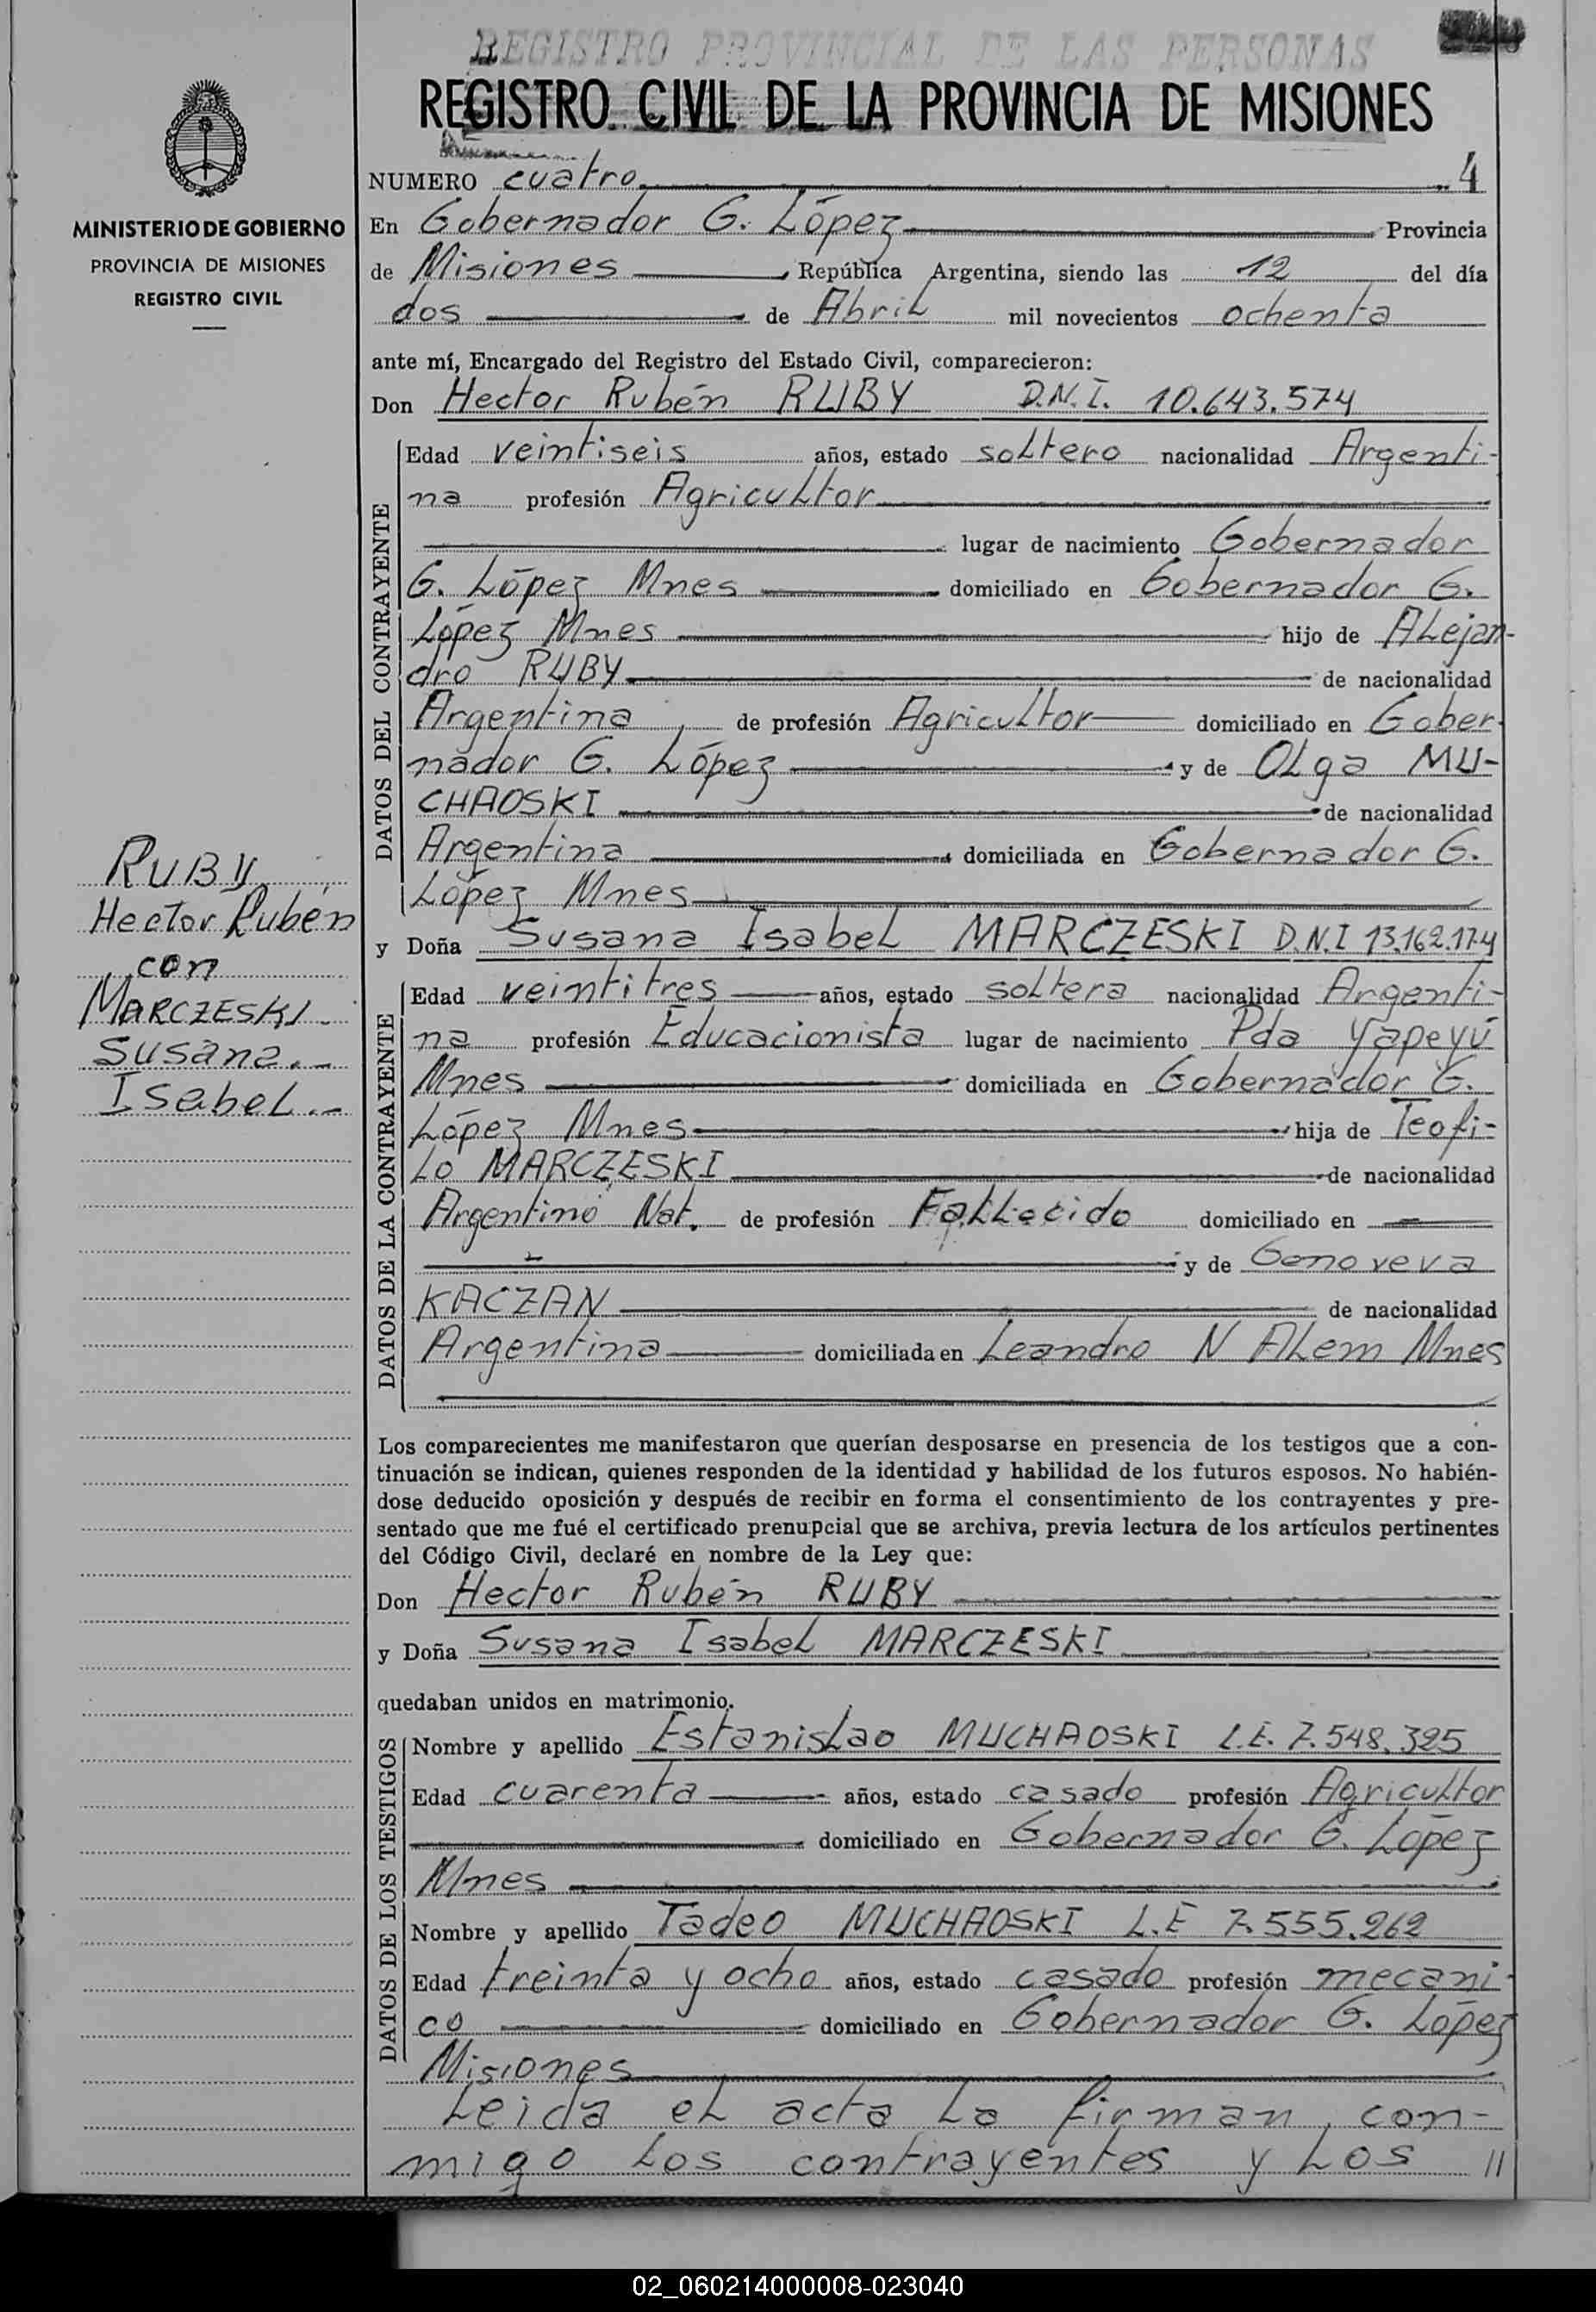 REGISTRO PROVINCIAL DE LAS PERSONAS
REGISTRO CIVIL DE LA PROVINCIA DE MISIONES
MINISTERIO DE GOBIERNO
PROVINCIA DE MISIONES
REGISTRO CIVIL
NUMERO cuatro 4
En Gobernador G. López Provincia
de Misiones, República Argentina, siendo las 12 del día
dos de Abril mil novecientos ochenta
ante mí, Encargado del Registro del Estado Civil, comparecieron:
Don Hector Rubén RUBY D.N.I. 10.643.574
DATOS DEL CONTRAYENTE
Edad veintiseis años, estado soltero nacionalidad Argenti-
na profesión Agricultor
lugar de nacimiento Gobernador
G. López Mnes domiciliado en Gobernador G.
López Mnes hijo de Alejan-
dro RUBY de nacionalidad
Argentina de profesión Agricultor domiciliado en Gober-
nador G. López y de Olga MU-
CHAOSKI de nacionalidad
Argentina domiciliada en Gobernador G.
López Mnes
RUBY
Hector Rubén
con
MARCZESKI
Susana.-
Isabel.-
y Doña Susana Isabel MARCZESKI D.N.I 13.162.174
DATOS DE LA CONTRAYENTE
Edad veintitres años, estado soltera nacionalidad Argenti-
na profesión Educacionista lugar de nacimiento Pda Yapeyú
Mnes domiciliada en Gobernador G.
López Mnes hija de Teofi-
lo MARCZESKI de nacionalidad
Argentino Nat. de profesión Fallecido domiciliado en —
y de Genoveva
KACZAN de nacionalidad
Argentina domiciliada en Leandro N Alem Mnes
Los comparecientes me manifestaron que querían desposarse en presencia de los testigos que a con-
tinuación se indican, quienes responden de la identidad y habilidad de los futuros esposos. No habién-
dose deducido oposición y después de recibir en forma el consentimiento de los contrayentes y pre-
sentado que me fué el certificado prenupcial que se archiva, previa lectura de los artículos pertinentes
del Código Civil, declaré en nombre de la Ley que:
Don Hector Rubén RUBY
y Doña Susana Isabel MARCZESKI
quedaban unidos en matrimonio.
DATOS DE LOS TESTIGOS
Nombre y apellido Estanislao MUCHAOSKI L.E. 7.548.325
Edad cuarenta años, estado casado profesión Agricultor
domiciliado en Gobernador G. López
Mnes
Nombre y apellido Tadeo MUCHAOSKI L.E 7.555.262
Edad treinta y ocho años, estado casado profesión mecani-
co domiciliado en Gobernador G. López
Misiones
Leida el acta la firman con-
migo los contrayentes y los //
02_060214000008-023040